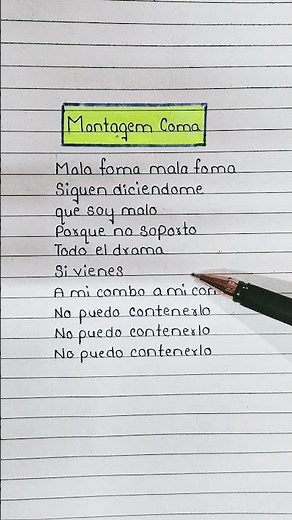 Montagem Coma
Mala foma mala foma
Siguen diciendome
que soy malo
Porque no soporto
Todo el drama
Si vienes
A mi combo a mi
No puedo contenerlo
No puedo contenerlo
No puedo contenerlo